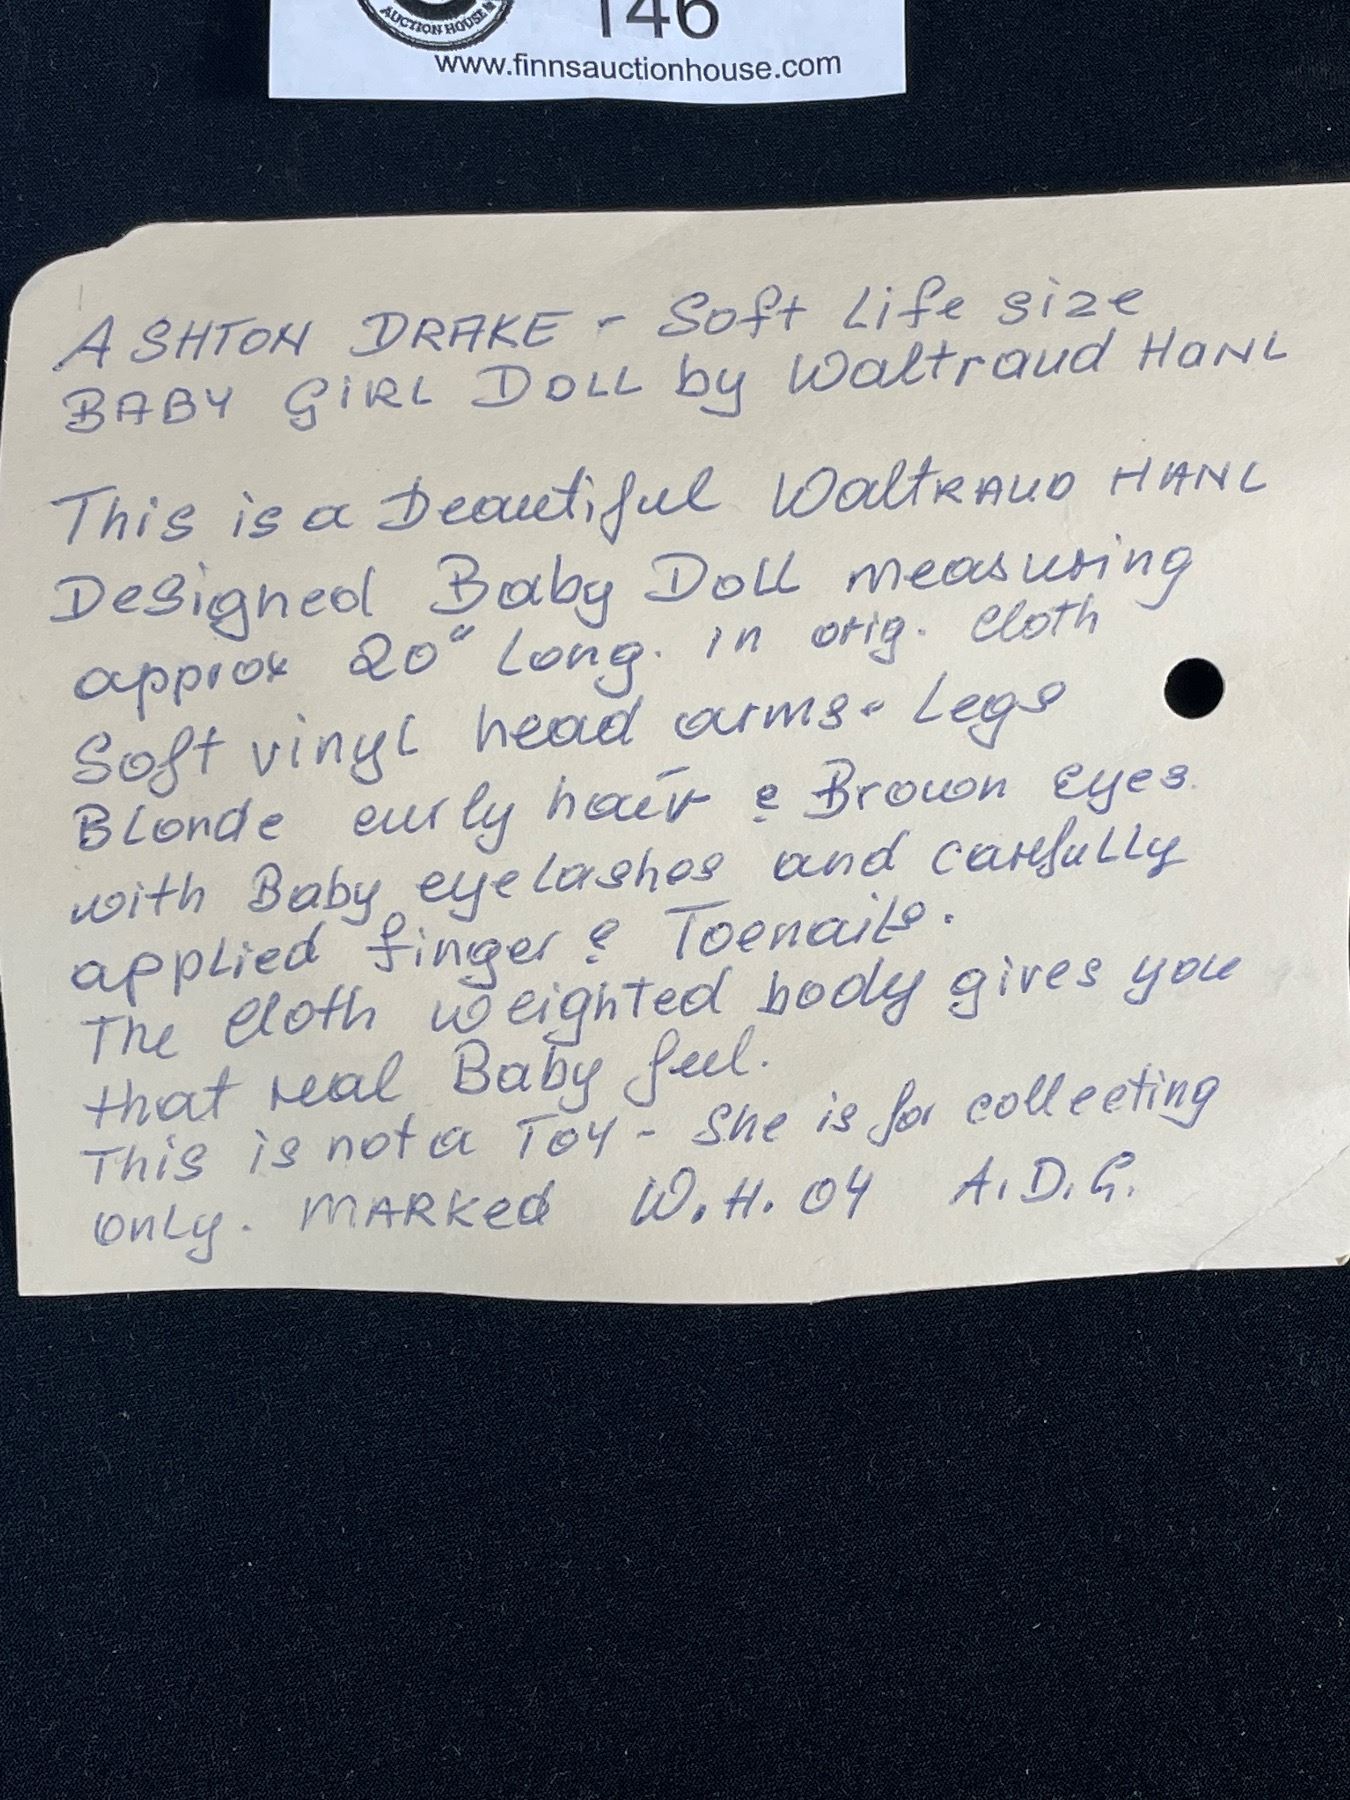 AUCTION HOUSE
146
www.finnsauctionhouse.com
ASHTON DRAKE - Soft Life size
BABY GIRL DOLL by Waltraud HaNL
This is a Beautiful WaltRAUD HANL
Designed Baby Doll measuring
approx 20" Long. in orig. cloth
Soft vinyl head arms - Legs
Blonde curly hair & Brown eyes.
with Baby eyelashes and carefully
applied finger & Toenails.
The cloth weighted body gives you
that real Baby feel.
This is not a Toy - She is for collecting
only. MARKed W.H. 04 A.D.G.